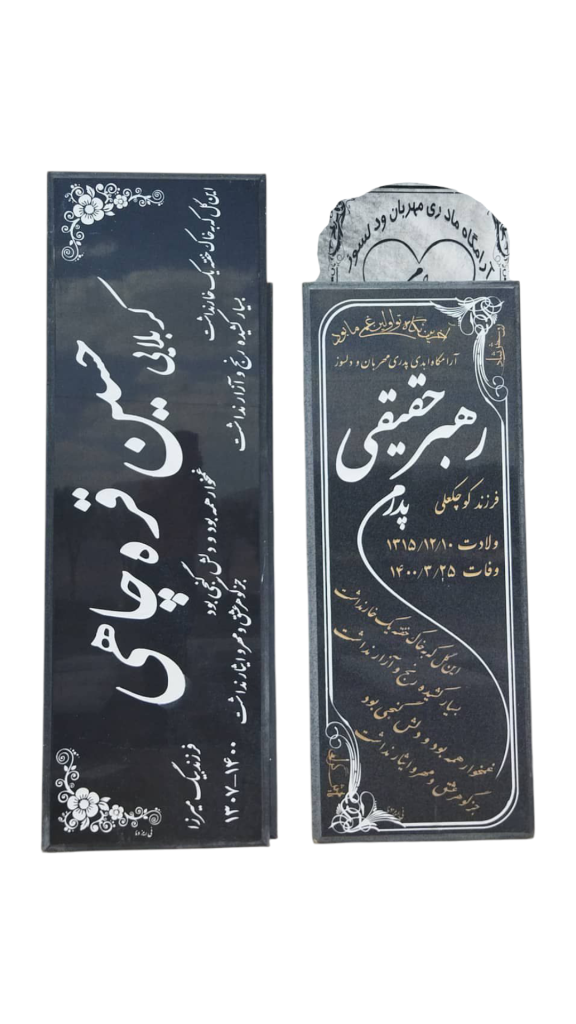 کربلایی
حسین قره چاهی
این گل که به خاک خفته یک خار نداشت
بسیار کشیده رنج و آزار نداشت
غمخوار همه بود و دلش گنجی بود
جز گوهر عشق و مهر و ایثار نداشت
فرزند بیک میرزا
۱۳۰۷-۱۴۰۰
آرامگاه مادری مهربان و دلسوز
آرامگاه ابدی پدری مهربان و دلسوز
رهبر حقیقی
پدرم
فرزند کوچکعلی
ولادت ۱۳۱۵/۱۲/۱۰
وفات ۱۴۰۰/۳/۲۵
این گل که به خاک خفته یک خار نداشت
بسیار کشیده رنج و آزار نداشت
غمخوار همه بود و دلش گنجی بود
جز گوهر عشق و مهر و ایثار نداشت